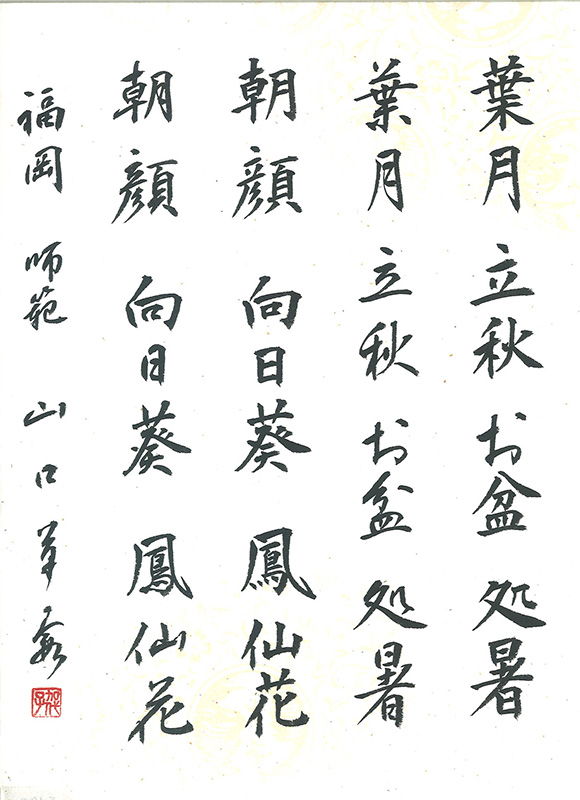 葉月 立秋 お盆 処暑
葉月 立秋 お盆 処暑
朝顔 向日葵 鳳仙花
朝顔 向日葵 鳳仙花
福岡 師範 山口